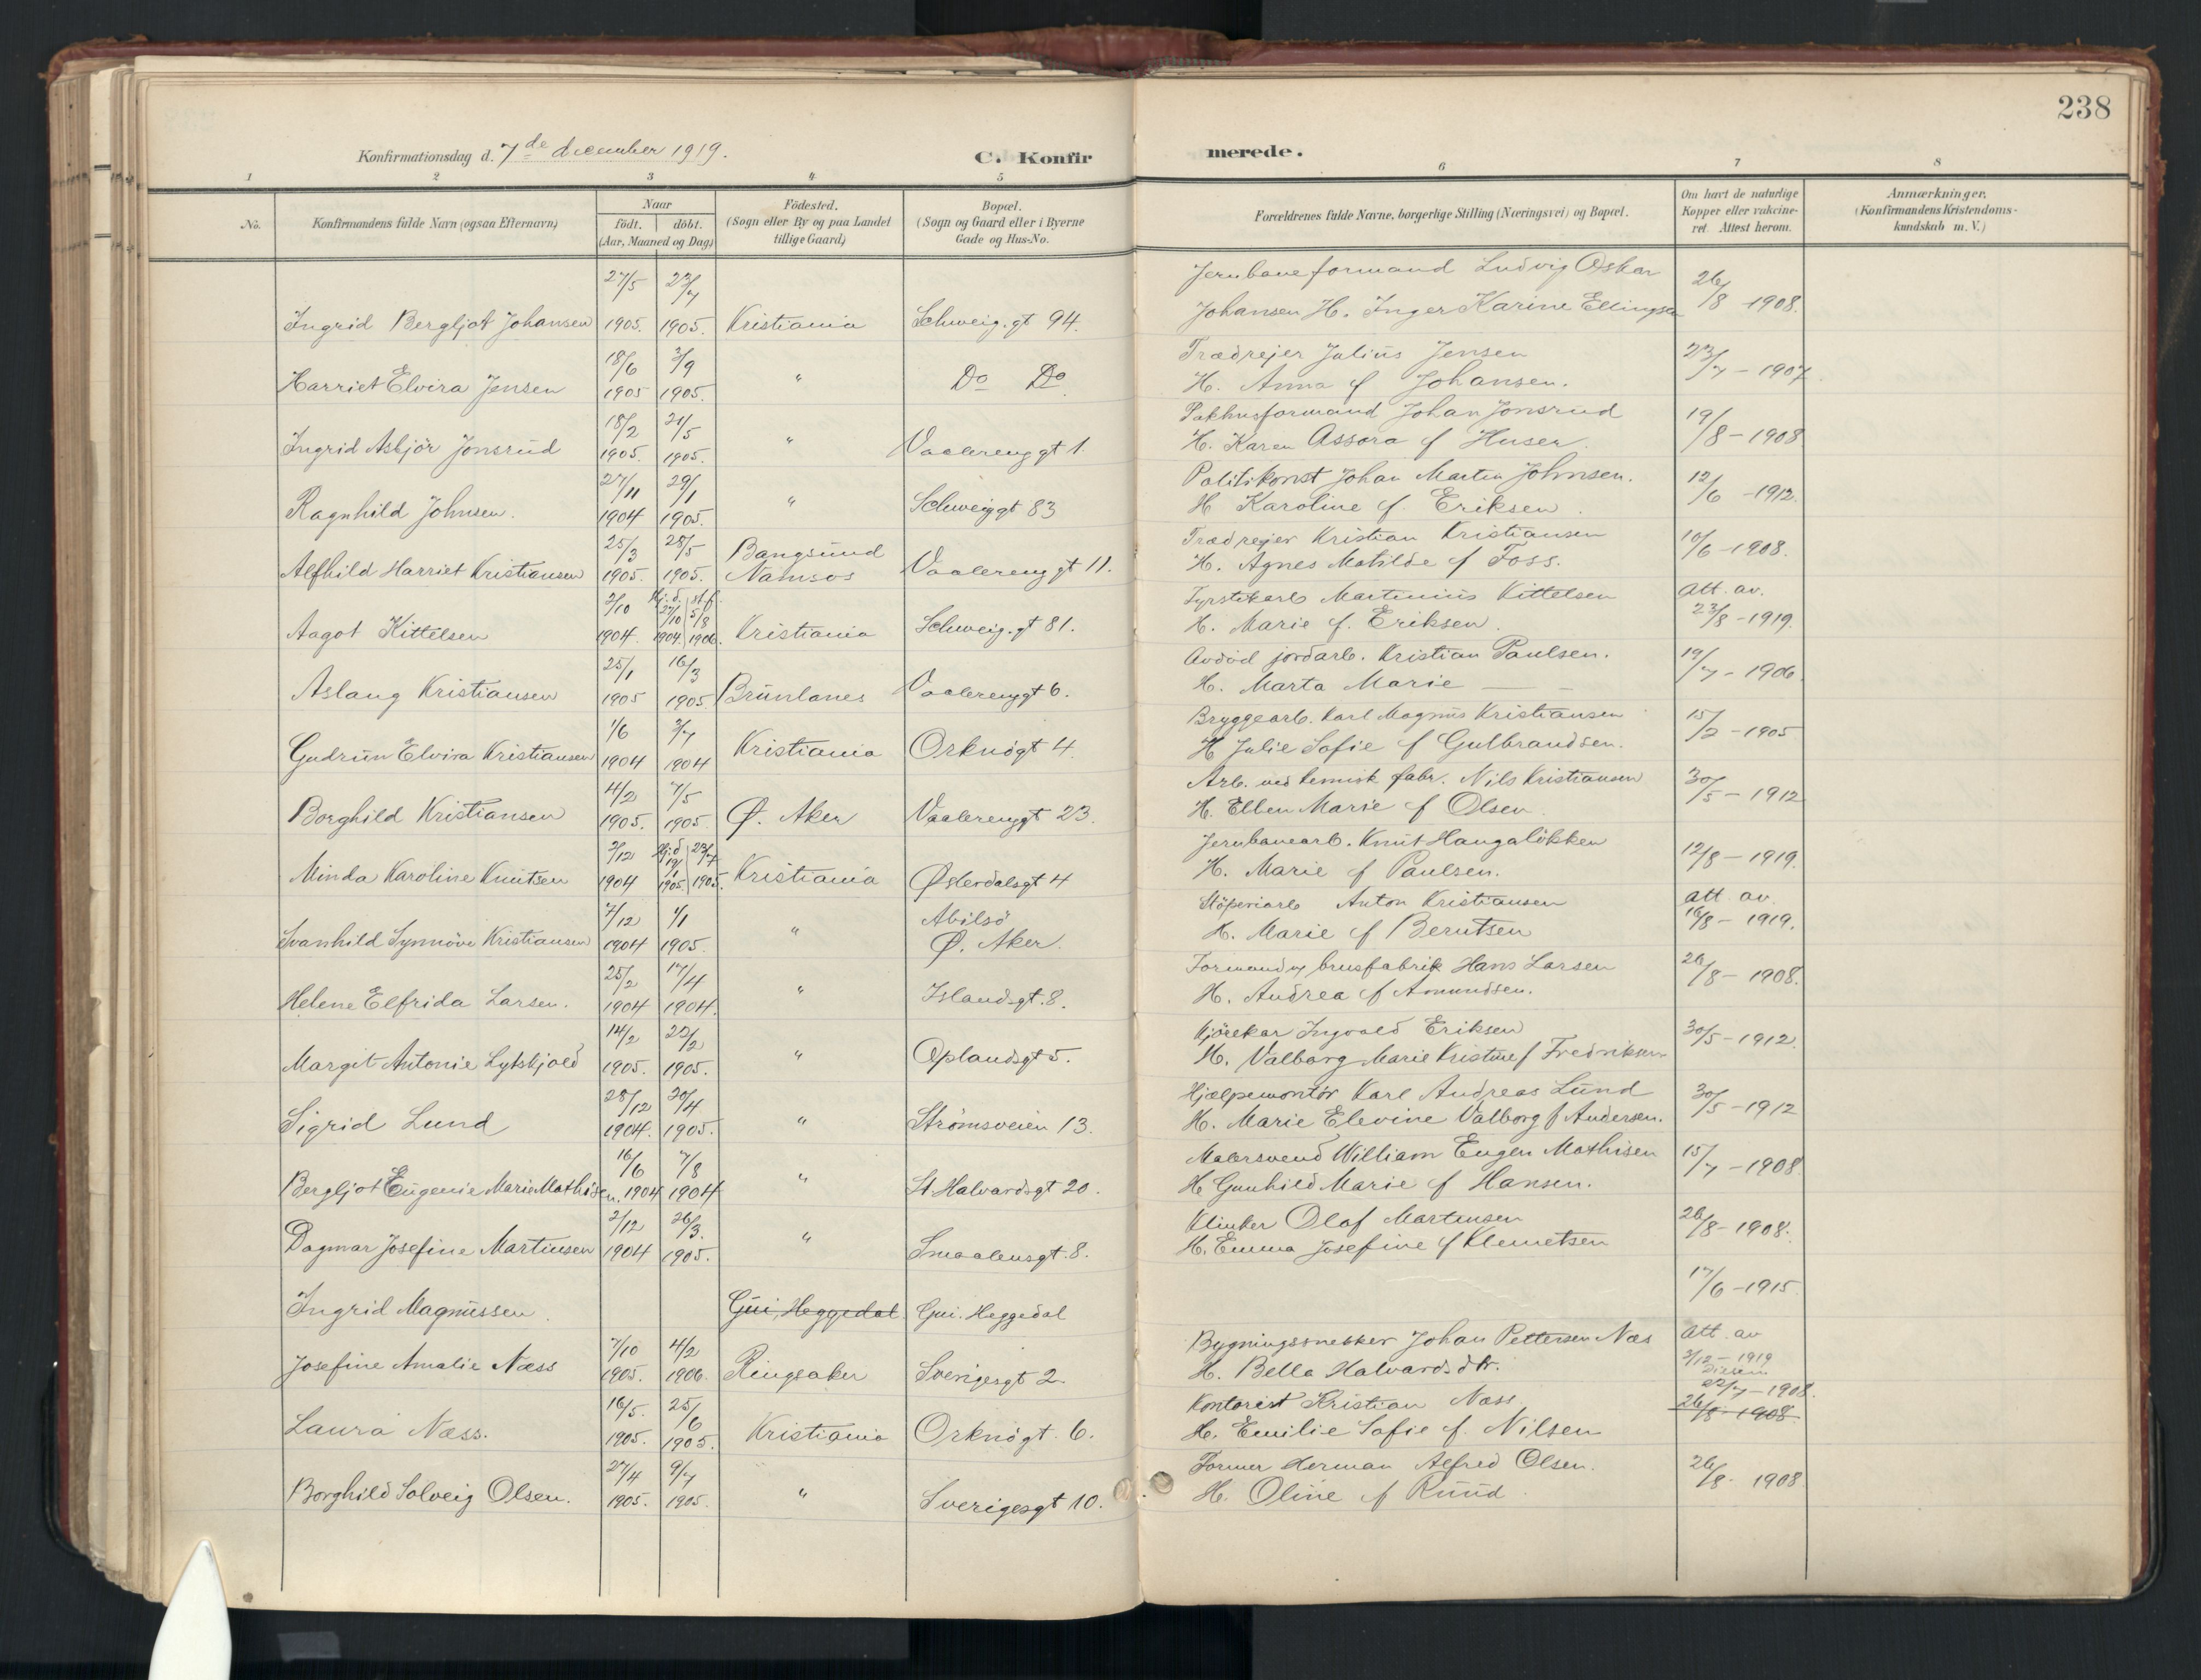 238
Konfirmationsdag d. 7de december 1919.
C. Konfirmerede.
1 2 3 4 5 6 7 8
No.
Konfirmandens fulde Navn (ogsaa Efternavn)
Naar
födt. döbt.
(Aar, Maaned og Dag)
Födested.
(Sogn eller By og paa Landet
tillige Gaard)
Bopæl.
(Sogn og Gaard eller i Byerne
Gade og Hus-No.
Forældrenes fulde Navne, borgerlige Stilling (Næringsvei) og Bopæl.
Om havt de naturlige
Kopper eller vakcine-
ret. Attest herom.
Anmærkninger,
(Konfirmandens Kristendoms-
kundskab m. V.)
27/5 23/7 Jernbaneformand Ludvig Oskar
Ingrid Bergljot Johansen 1905. 1905. Kristiania Schweig.gt 94. Johansen H. Inger Karine Ellingsen 26/8 1908.
18/6 3/9 Trædrejer Julius Jensen
Harriet Elvira Jensen 1905 1905. " Do Do H. Anna f Johansen. 23/7 - 1907
18/2 21/5 Pakhusformand Johan Jonsrud
Ingrid Asbjör Jonsrud 1905. 1905. " Vaalereng gt 1. H. Karen Assora f Huser. 19/8 - 1908
27/11 29/1 Politikonst Johan Martin Johnsen.
Ragnhild Johnsen. 1904 1905. " Schweiggt 83 H Karoline f. Eriksen. 12/6 - 1912.
25/3 28/5 Bangsund Trædrejer Kristian Kristiansen
Alfhild Harriet Kristiansen 1905. 1905. Namsos Vaalereng gt 11. H. Agnes Matilde f Foss. 10/6 - 1908.
2/10 Hj.d. 27/10 st.f. 5/8 Martinius Kittelsen att. av.
Aagot Kittelsen 1904. 1904. 1906. Kristiania Schweig.gt 81. H. Marie f. Eriksen. 23/8 - 1919.
25/1 16/3 Avdöd jordarb. Kristian Paulsen.
Aslaug Kristiansen 1905 1905. Brunlanes Vaalerengt 6. H. Marta Marie — — 19/7 - 1906
1/6 3/7 Bryggearb. Karl Magnus Kristiansen
Gudrun Elvira Kristiansen 1904 1904 Kristiania Orknögt 4. H Julie Sofie f Gulbrandsen. 15/2 - 1905
4/2 7/5 Arb. ved kemisk fabr. Nils Kristiansen
Borghild Kristiansen 1905. 1905. Ø. Aker Vaalerengt 23. H. Ellen Marie f Olsen. 30/5 - 1912
3/12 Hj.d 19/1 23/7 Jernbanearb. Knut Haugalökken
Minda Karoline Knutsen 1904 1905. 1905. Kristiania Østerdalsgt 4 H. Marie f Paulsen. 12/8 - 1919.
7/12 1/1 Abilsö Stöperiarb Anton Kristiansen att av
Svanhild Synnöve Kristiansen 1904 1905. " Ø. Aker. H. Marie f Berntsen 16/8 - 1919.
25/2 17/4 Formand v brusfabrik Hans Larsen
Helene Elfrida Larsen. 1904 1904. " Islandsgt. 8. H. Andrea f Amundsen. 26/8 - 1908.
14/2 22/2 Kjörekar Ingvald Eriksen
Margit Antonie Lytskjold 1905. 1905. " Oplandsgt 5. H. Valborg Marie Kristine f Fredriksen 30/5 - 1912.
28/12 30/4 Hjælpemontör Karl Andreas Lund
Sigrid Lund 1904. 1905. " Strömsveien 13. H. Marie Elevine Valborg f Andersen. 30/5 - 1912
16/6 7/8 Malersvend William Eugen Mathisen
Bergljot Eugenie Marie Mathisen. 1904 1904 " St. Halvardsgt 20. H Gunhild Marie f Hansen. 15/7 - 1908
2/12 26/3. Klinker Olaf Martinsen
Dagmar Josefine Martinsen 1904 1905. " Smaalensgt. 8. H. Emma Josefine f Klemetsen 26/8 - 1908.
Ingrid Magnussen. Gui, Heggedal Gui. Heggedal 17/6 - 1915
7/10 4/2 Bygningssnekker Johan Pettersen Næs att. av
Josefine Amalie Næss 1905. 1906. Ringsaker Sverigesgt 2. H. Bella Halvardsdtr. 3/12 - 1919
16/5. 25/6 Kontorist Kristian Næss 22/7 - 1908.
Laura Næss. 1905. 1905. Kristiania Orknögt. 6. H. Emilie Sofie f. Nilsen 26/8 - 1908.
27/4 9/7 Former Herman Alfred Olsen.
Borghild Solveig Olsen. 1905. 1905. " Sverigesgt 10. H. Oline f Ruud. 26/8 - 1908